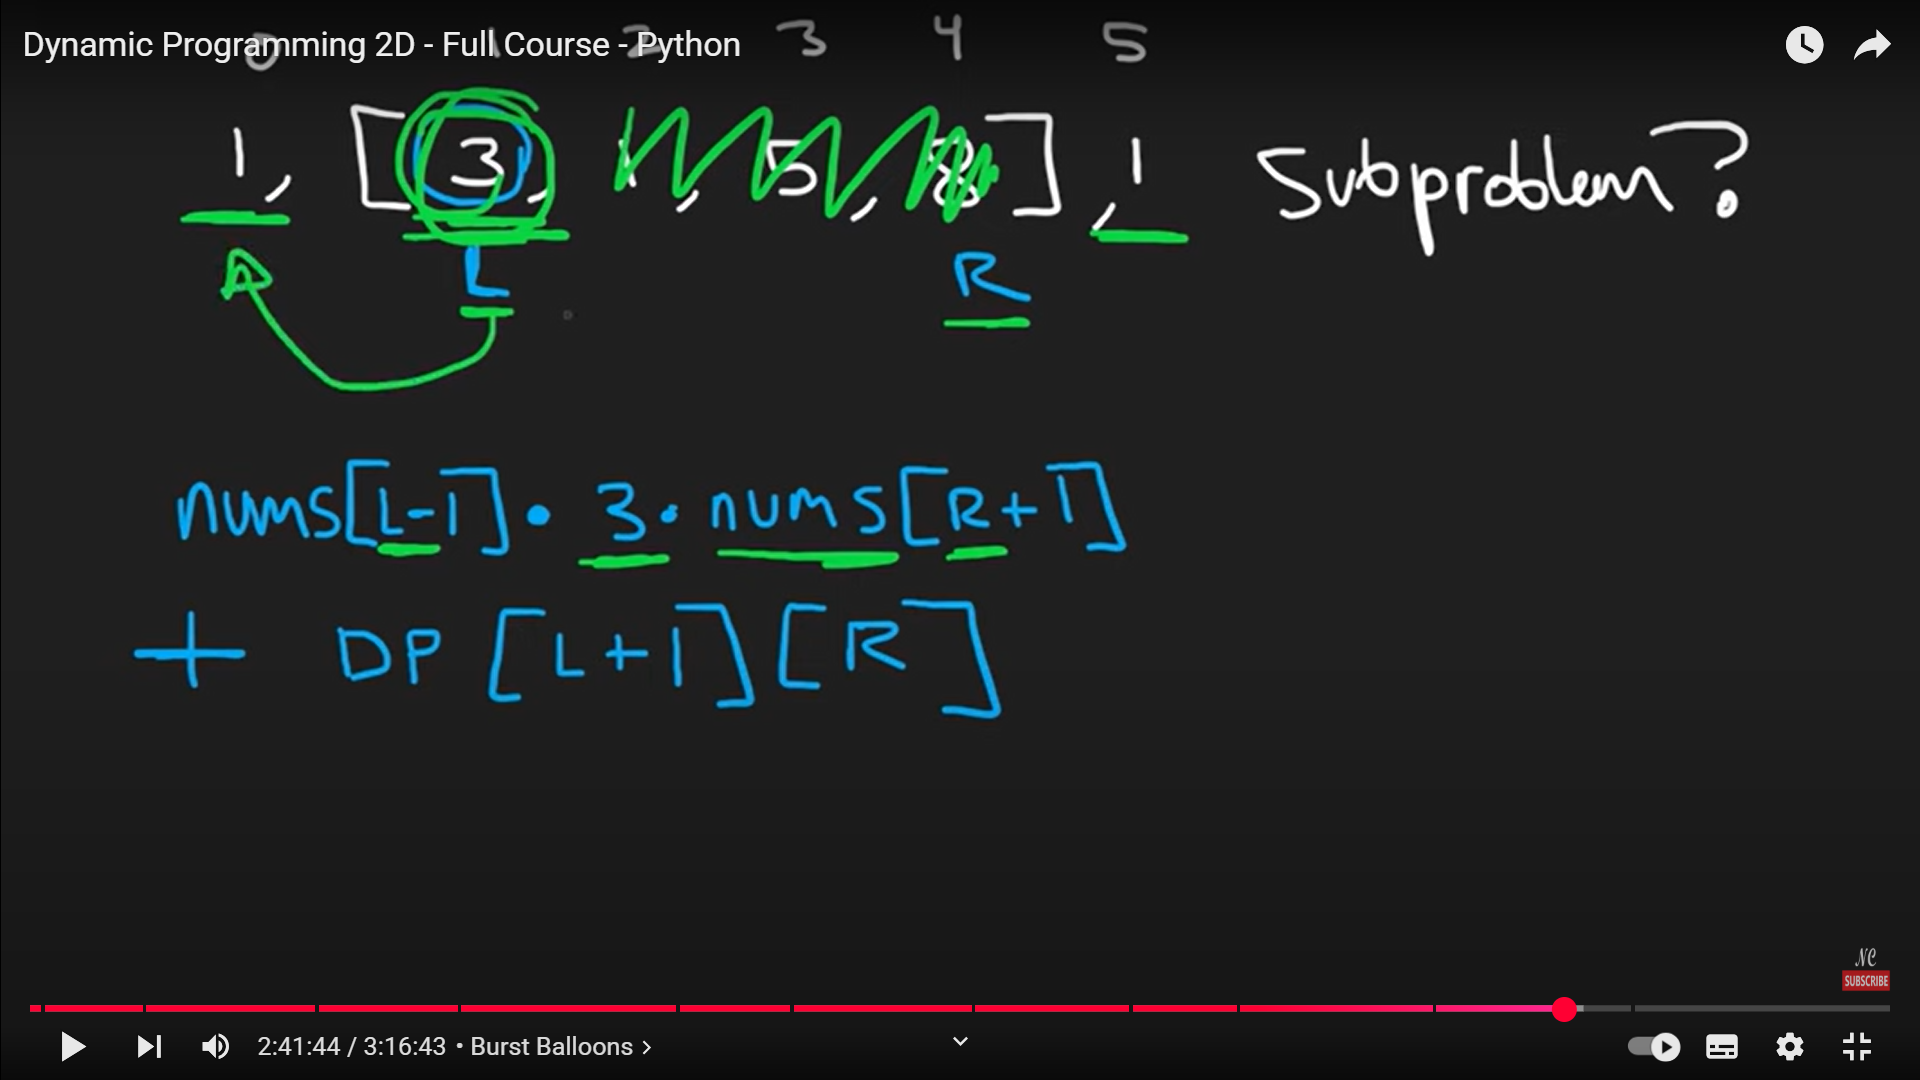 Dynamic Programming 2D - Full Course - Python
0 1 2 3 4 5
1, [3, 1, 5, 8], 1 Subproblem?
L R
nums[L-1] • 3 • nums[R+1]
+ DP [L+1][R]
NC
SUBSCRIBE
2:41:44 / 3:16:43 • Burst Balloons >